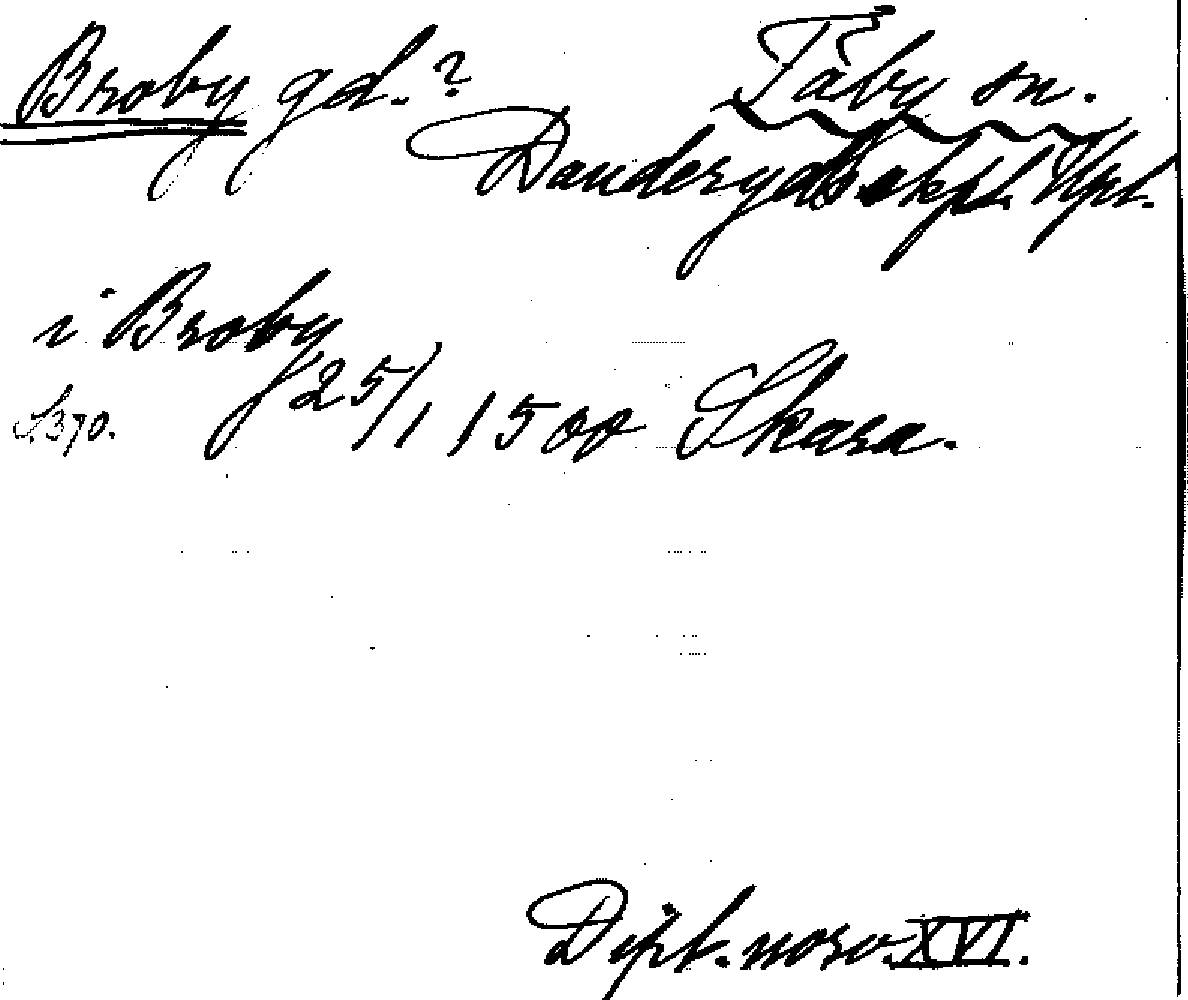 Broby gd.? Täby sn.
Danderyds skpl. Upl.
i Broby
S.370. 25/1 1500 Skara.
Dipl. norv. XVI.